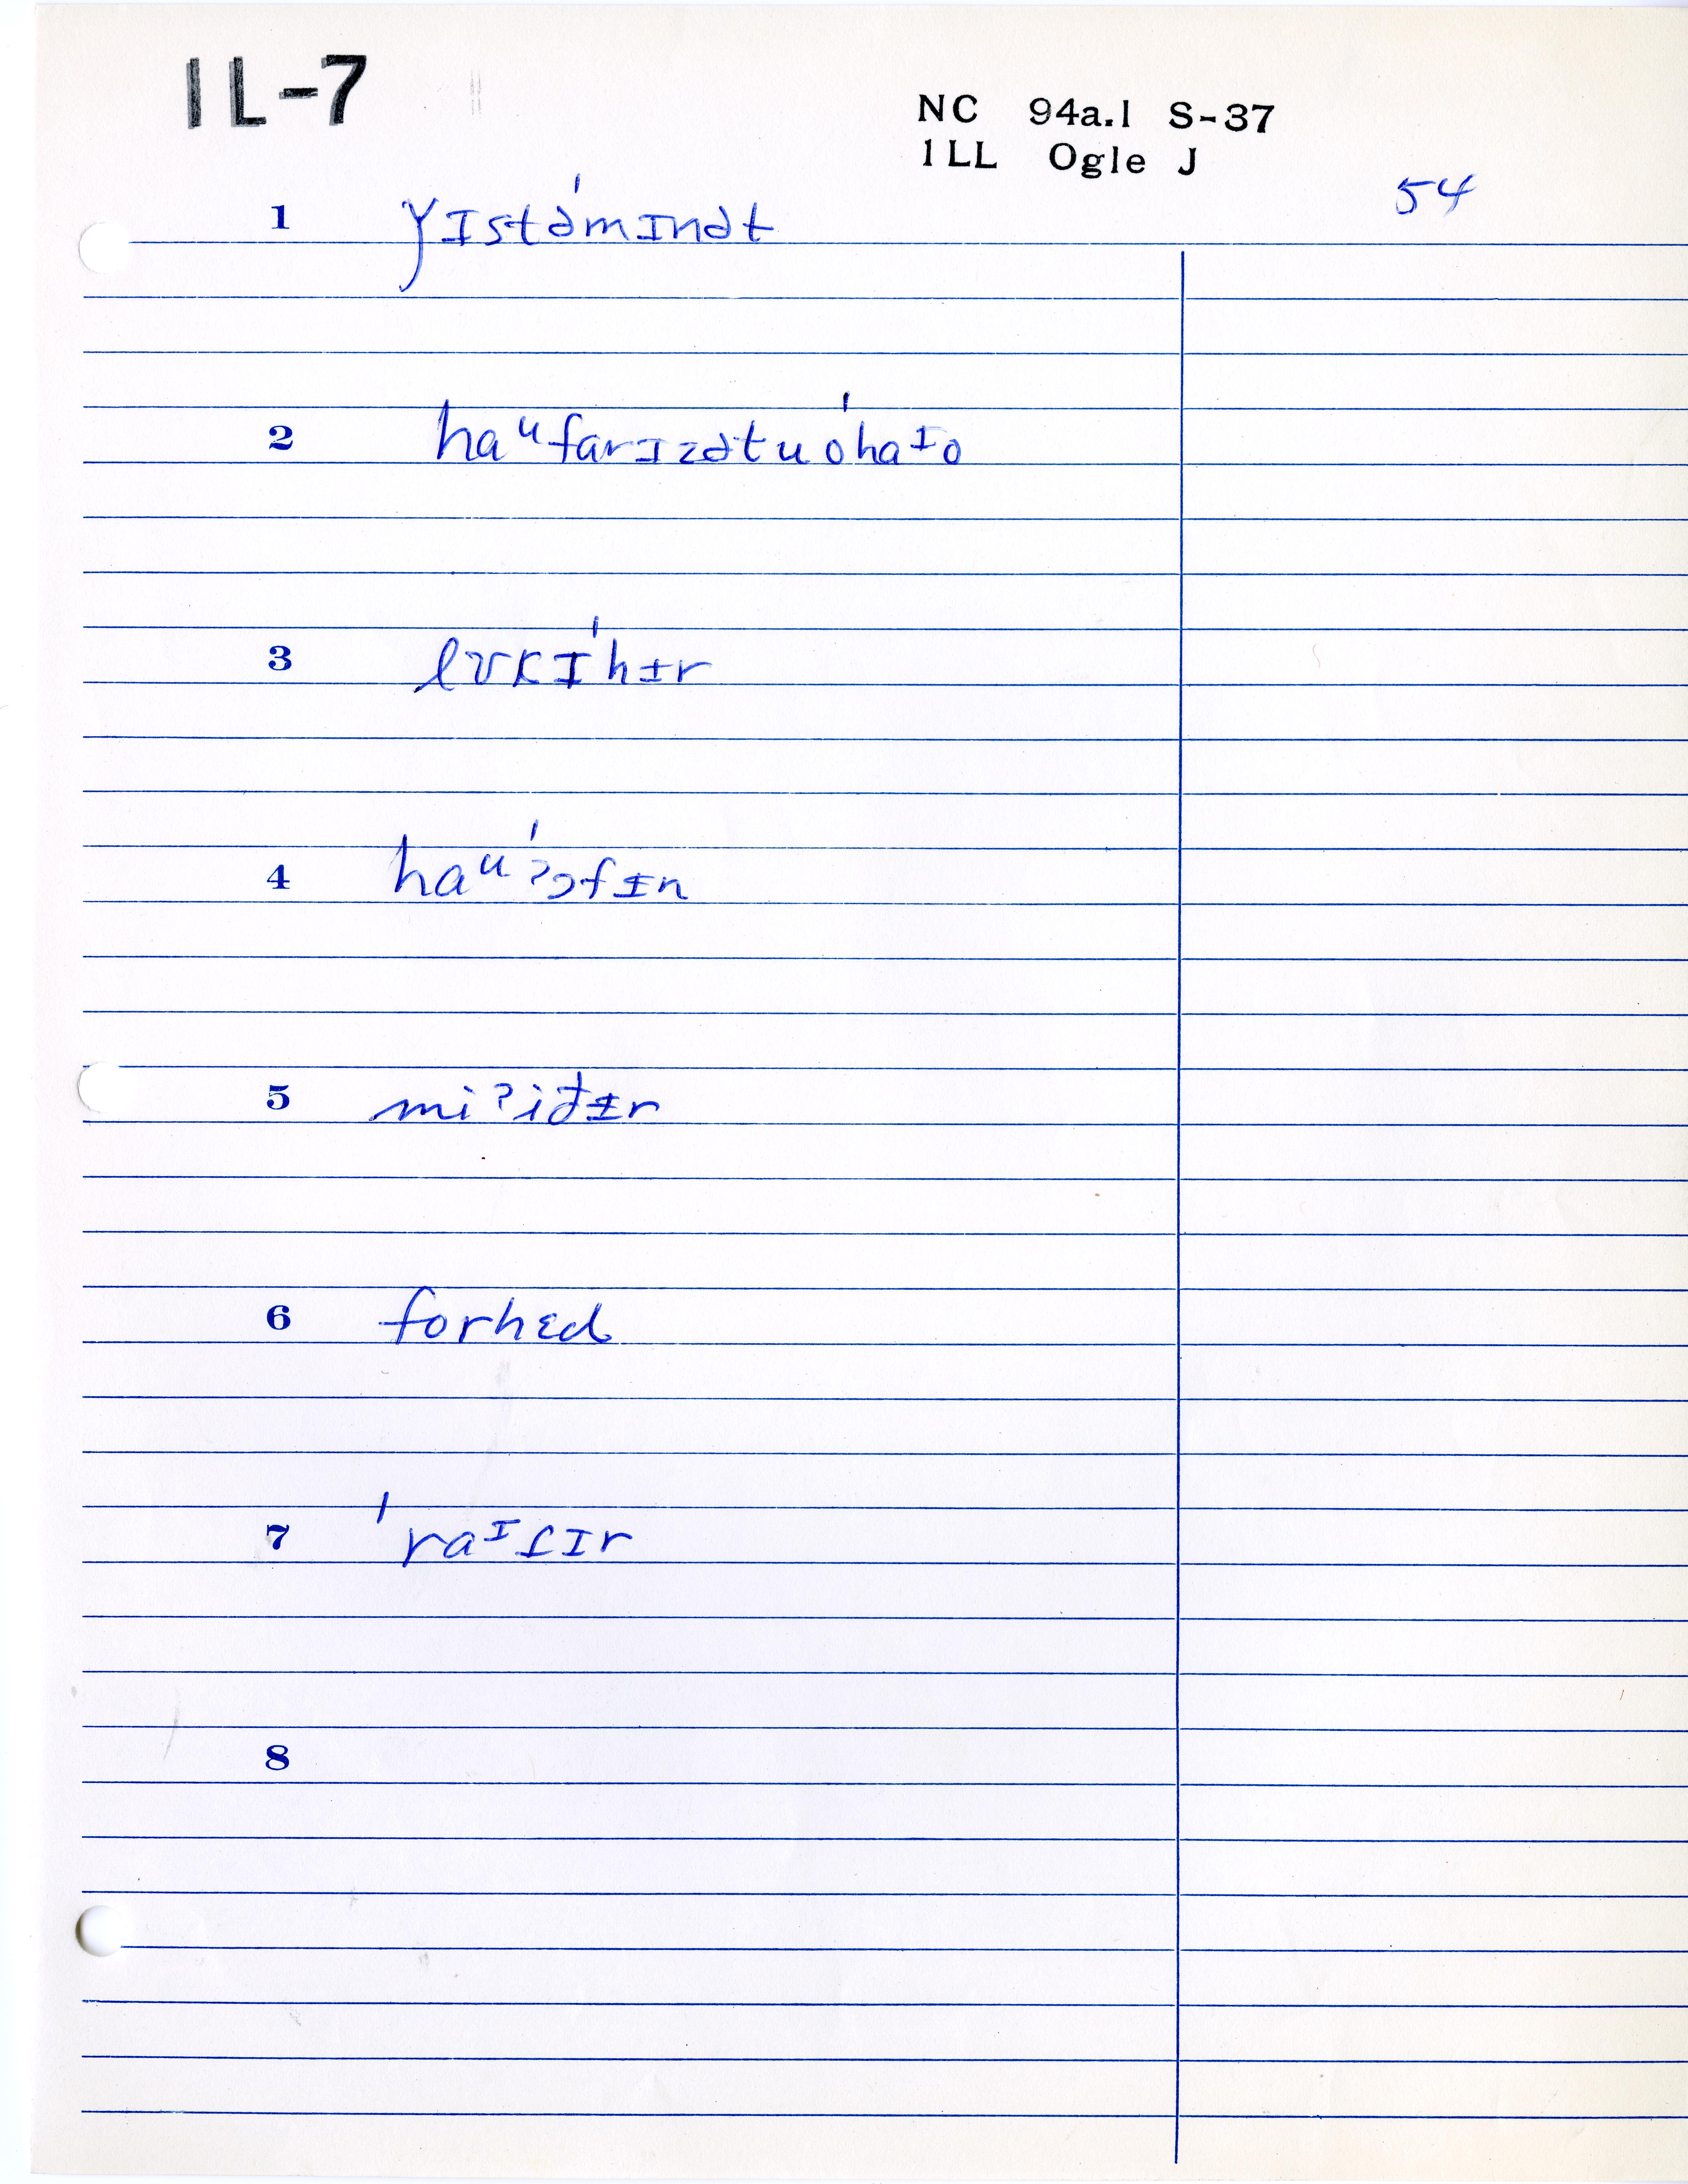 IL-7
NC 94a.1 S-37
ILL Ogle J
54
1 ɣɪstə́mɪnət
2 haᵘfarɪzətuóhaᶦo
3 lʊkɪ́hɨr
4 haᵘʔɔ́fɨn
5 miʔiđɨr
6 forhɛd
7 ˈraᶦſɪr
8